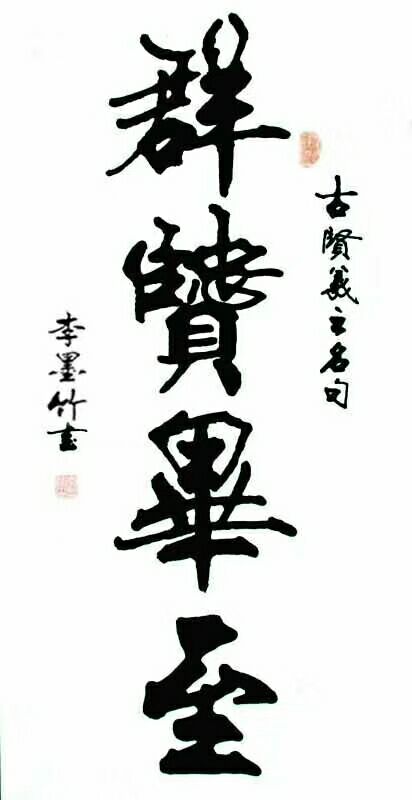 群賢畢至
古賢羲之名句
李墨竹書